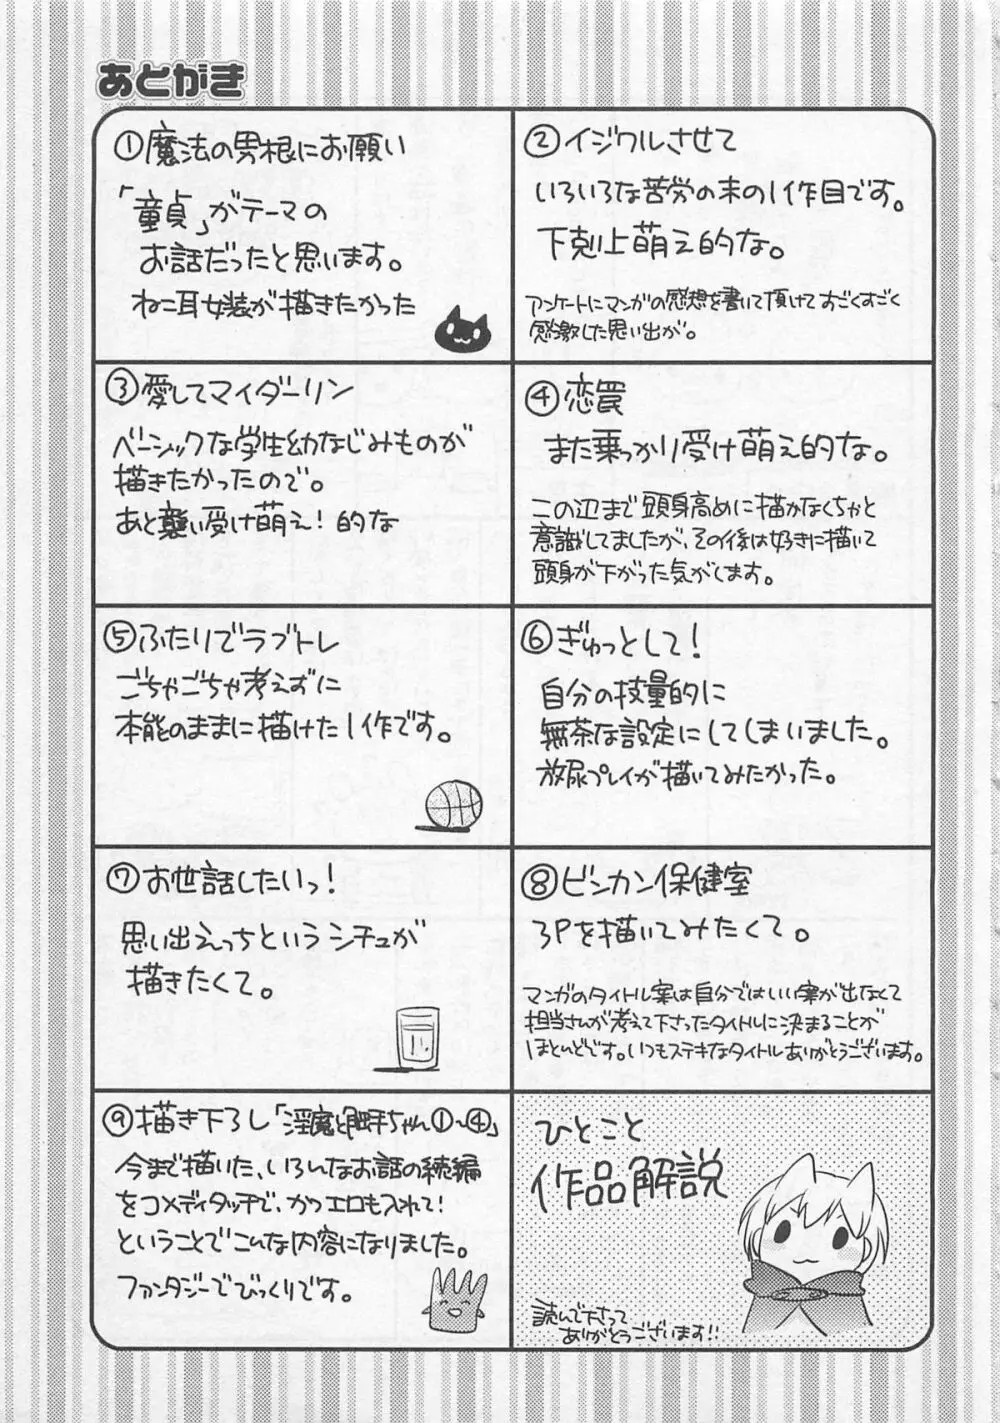 あとがき
①魔法の男根にお願い
「童貞」がテーマの
お話だったと思います。
ねこ耳女装が描きたかった
②イジワルさせて
いろいろな苦労の末の1作目です。
下剋上萌え的な。
アンケートにマンガの感想を書いて頂けてすごくすごく
感激した思い出が。
③愛してマイダーリン
ベーシックな学生幼なじみものが
描きたかったので。
あと襲い受け萌え!的な
④恋罠
また乗っかり受け萌え的な。
この辺まで頭身高めに描かなくちゃと
意識してましたが、その後は好きに描いて
頭身が下がった気がします。
⑤ふたりでラブトレ
ごちゃごちゃ考えずに
本能のままに描けた1作です。
⑥ぎゅっとして!
自分の技量的に
無茶な設定にしてしまいました。
放尿プレイが描いてみたかった。
⑦お世話したいっ!
思い出えっちというシチュが
描きたくて。
⑧ビンカン保健室
3Pを描いてみたくて。
マンガのタイトル案は自分ではいい案が出なくて
担当さんが考えて下さったタイトルに決まることが
ほとんどです。いつもステキなタイトルありがとうございます。
⑨描き下ろし「淫魔と触手ちゃん①〜④」
今まで描いた、いろんなお話の続編
をコメディタッチで、かつエロも入れて!
ということでこんな内容になりました。
ファンタジーでびっくりです。
ひとこと
作品解説
読んで下さって
ありがとうございます!!